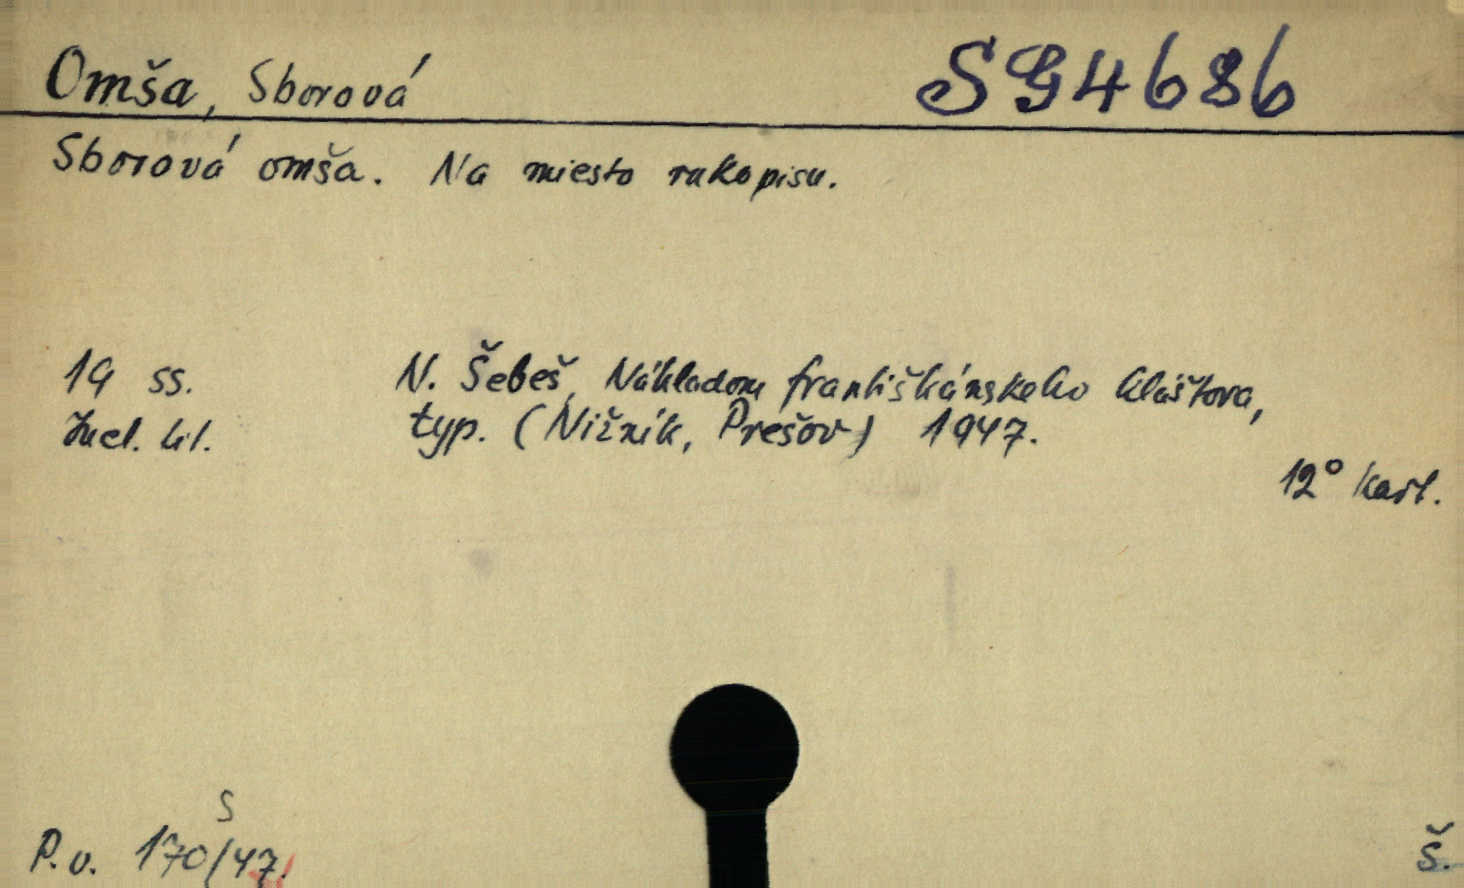 Omša, Sborová
SG4686
Sborová omša. Na miesto rukopisu.
19 ss. N. Šebeš, Nákladom františkánskeho kláštora,
Incl. tit. typ. (Nižník, Prešov) 1947.
12° Kart.
S
P.v. 170/47.
Š.